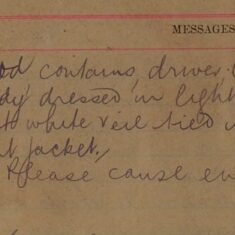 MESSAGES
od contains, driver
dy dressed in light
white veil tied
t jacket,
Please cause en